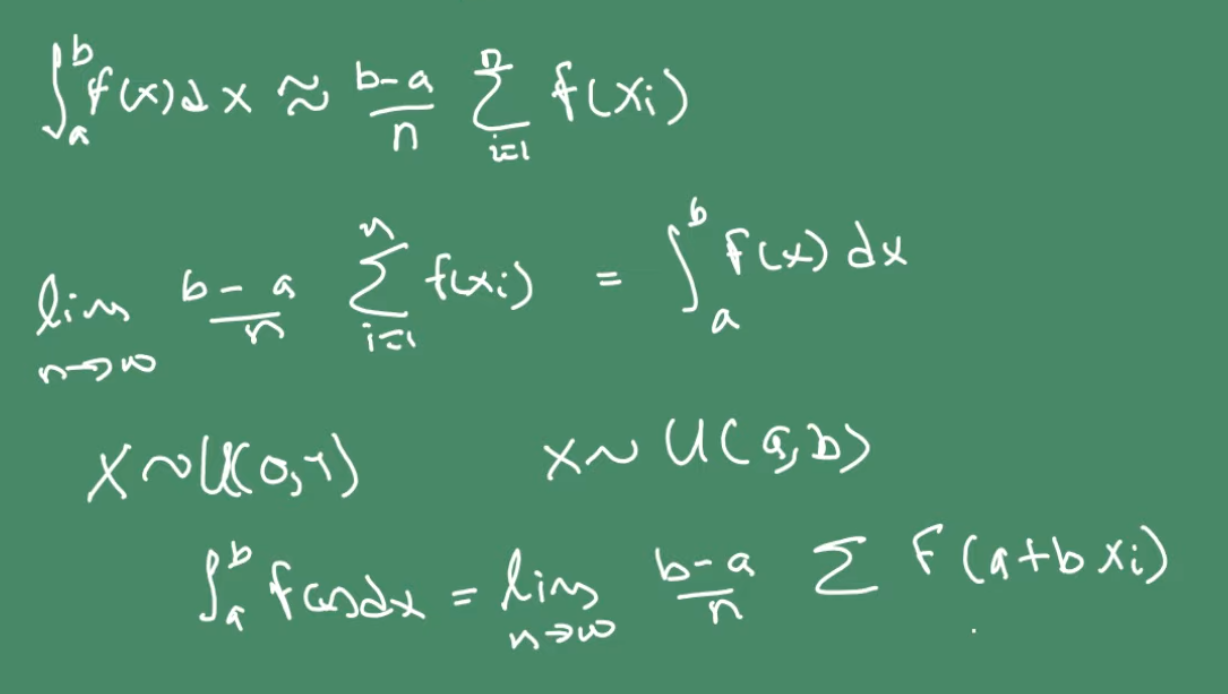 ∫_a^b f(x)dx ≈ (b-a)/n ∑_{i=1}^n f(xi)
lim_{n→∞} (b-a)/n ∑_{i=1}^n f(xi) = ∫_a^b f(x) dx
X~U(0,1) x~U(a,b)
∫_a^b f(x)dx = lim_{n→∞} (b-a)/n ∑ F(a+b xi)